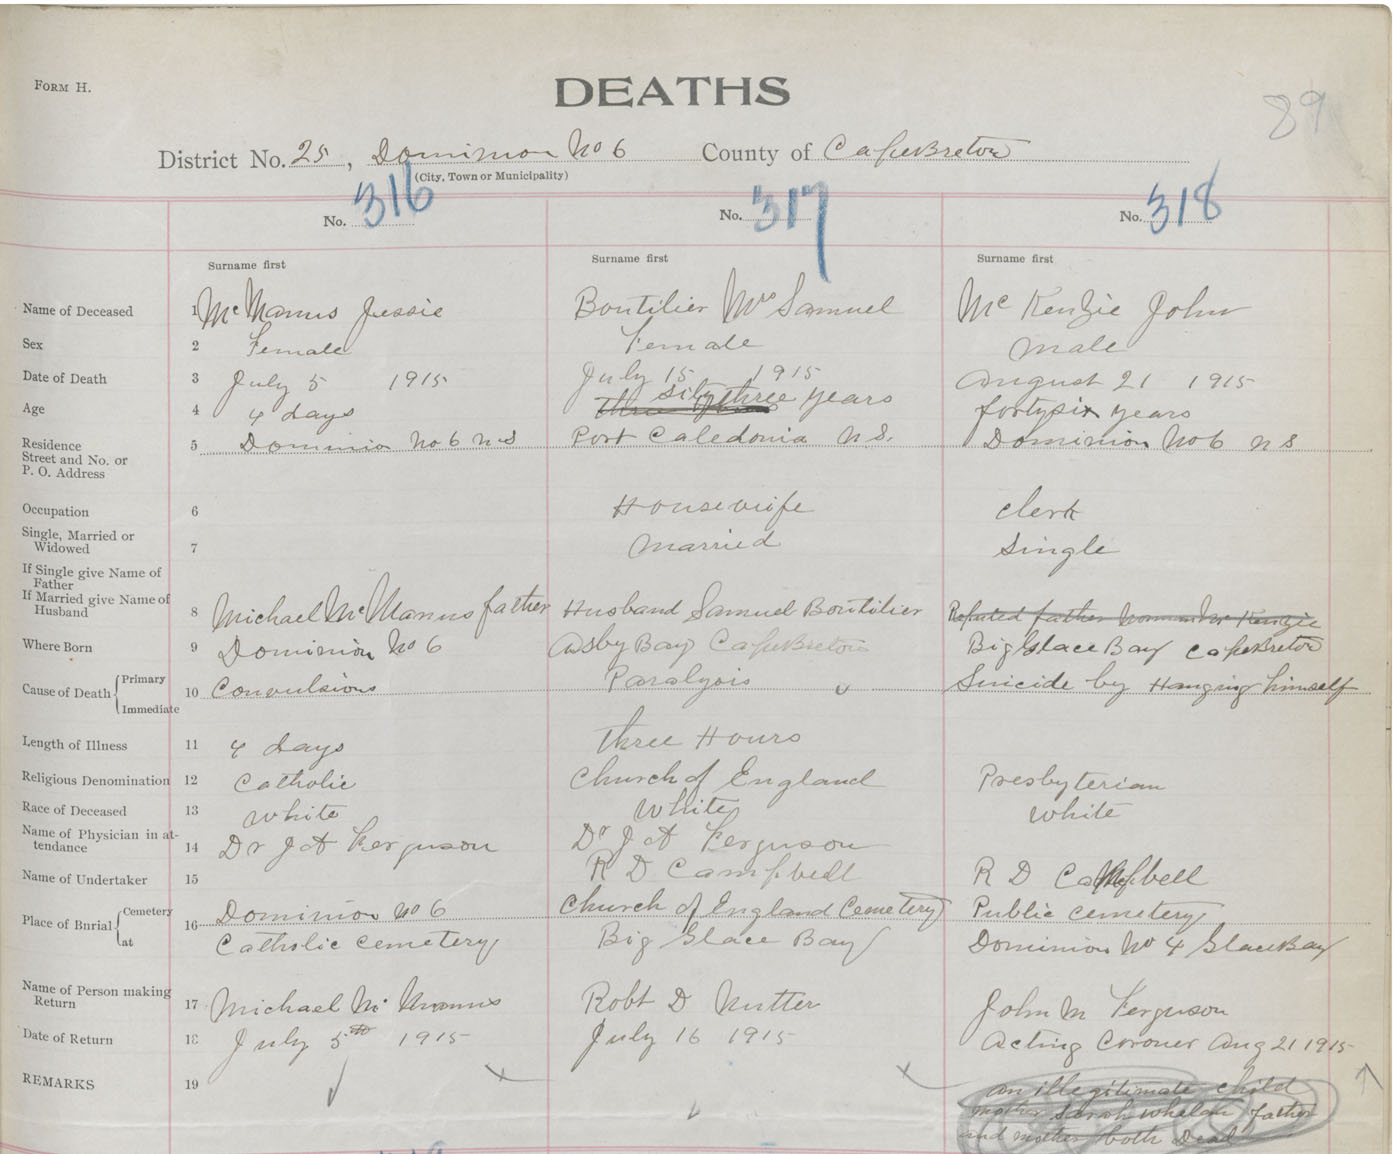 FORM H.
DEATHS
89
District No. 25, Dominion No 6 County of Cape Breton
(City, Town or Municipality)
No. 316 No. 317 No. 318
Surname first Surname first Surname first
Name of Deceased 1 McManus Jessie Boutilier Mrs Samuel McKenzie John
Sex 2 Female Female male
Date of Death 3 July 5 1915 July 15 1915 August 21 1915
Age 4 4 days sixty three years fortysix years
Residence
Street and No. or
P. O. Address 5 Dominion No 6 N S Port Caledonia N.S. Dominion No 6 N S
Occupation 6 Housewife clerk
Single, Married or
Widowed 7 married Single
If Single give Name of
Father
If Married give Name of
Husband 8 Michael McManus father Husband Samuel Boutilier Reputed father Norman McKenzie
Where Born 9 Dominion No 6 Asby Bay Cape Breton Big Glace Bay Cape Breton
Cause of Death { Primary
Immediate 10 Convulsions Paralysis Suicide by Hanging himself
Length of Illness 11 4 days three Hours
Religious Denomination 12 Catholic Church of England Presbyterian
Race of Deceased 13 white White white
Name of Physician in at-
tendance 14 Dr J A Ferguson Dr J A Ferguson
Name of Undertaker 15 R D Campbell R D Campbell
Place of Burial { Cemetery
at 16 Dominion No 6 Church of England Cemetery Public cemetery
Catholic cemetery Big Glace Bay Dominion No 4 Glace Bay
Name of Person making
Return 17 Michael Mc Manus Robt D Nutter John M Ferguson
Date of Return 18 July 5th 1915 July 16 1915 Acting Coroner Aug 21 1915
REMARKS 19 an illegitimate child
mother Sarah Whelan father
and mother both Dead